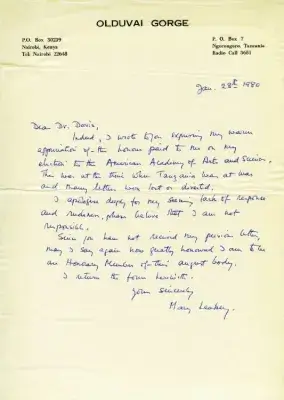 OLDUVAI GORGE
P.O. Box 30239
Nairobi, Kenya
Tel: Nairobi 22648
P. O. Box 7
Ngorongoro Tanzania
Radio Call 3681
Jan. 28th 1980
Dear Dr. Davis,
Indeed, I wrote to you expressing my warm
appreciation of the honour paid to me on my
election to the American Academy of Arts and Sciences.
This was at the time when Tanzania was at war
and many letters were lost or diverted.
I apologise deeply for my seeming lack of response
and rudeness, please believe that I am not
responsible.
Since you have not received my previous letter,
may I say again how greatly honoured I am to be
an Honorary Member of this august body.
I return the form herewith.
Yours sincerely
Mary Leakey.